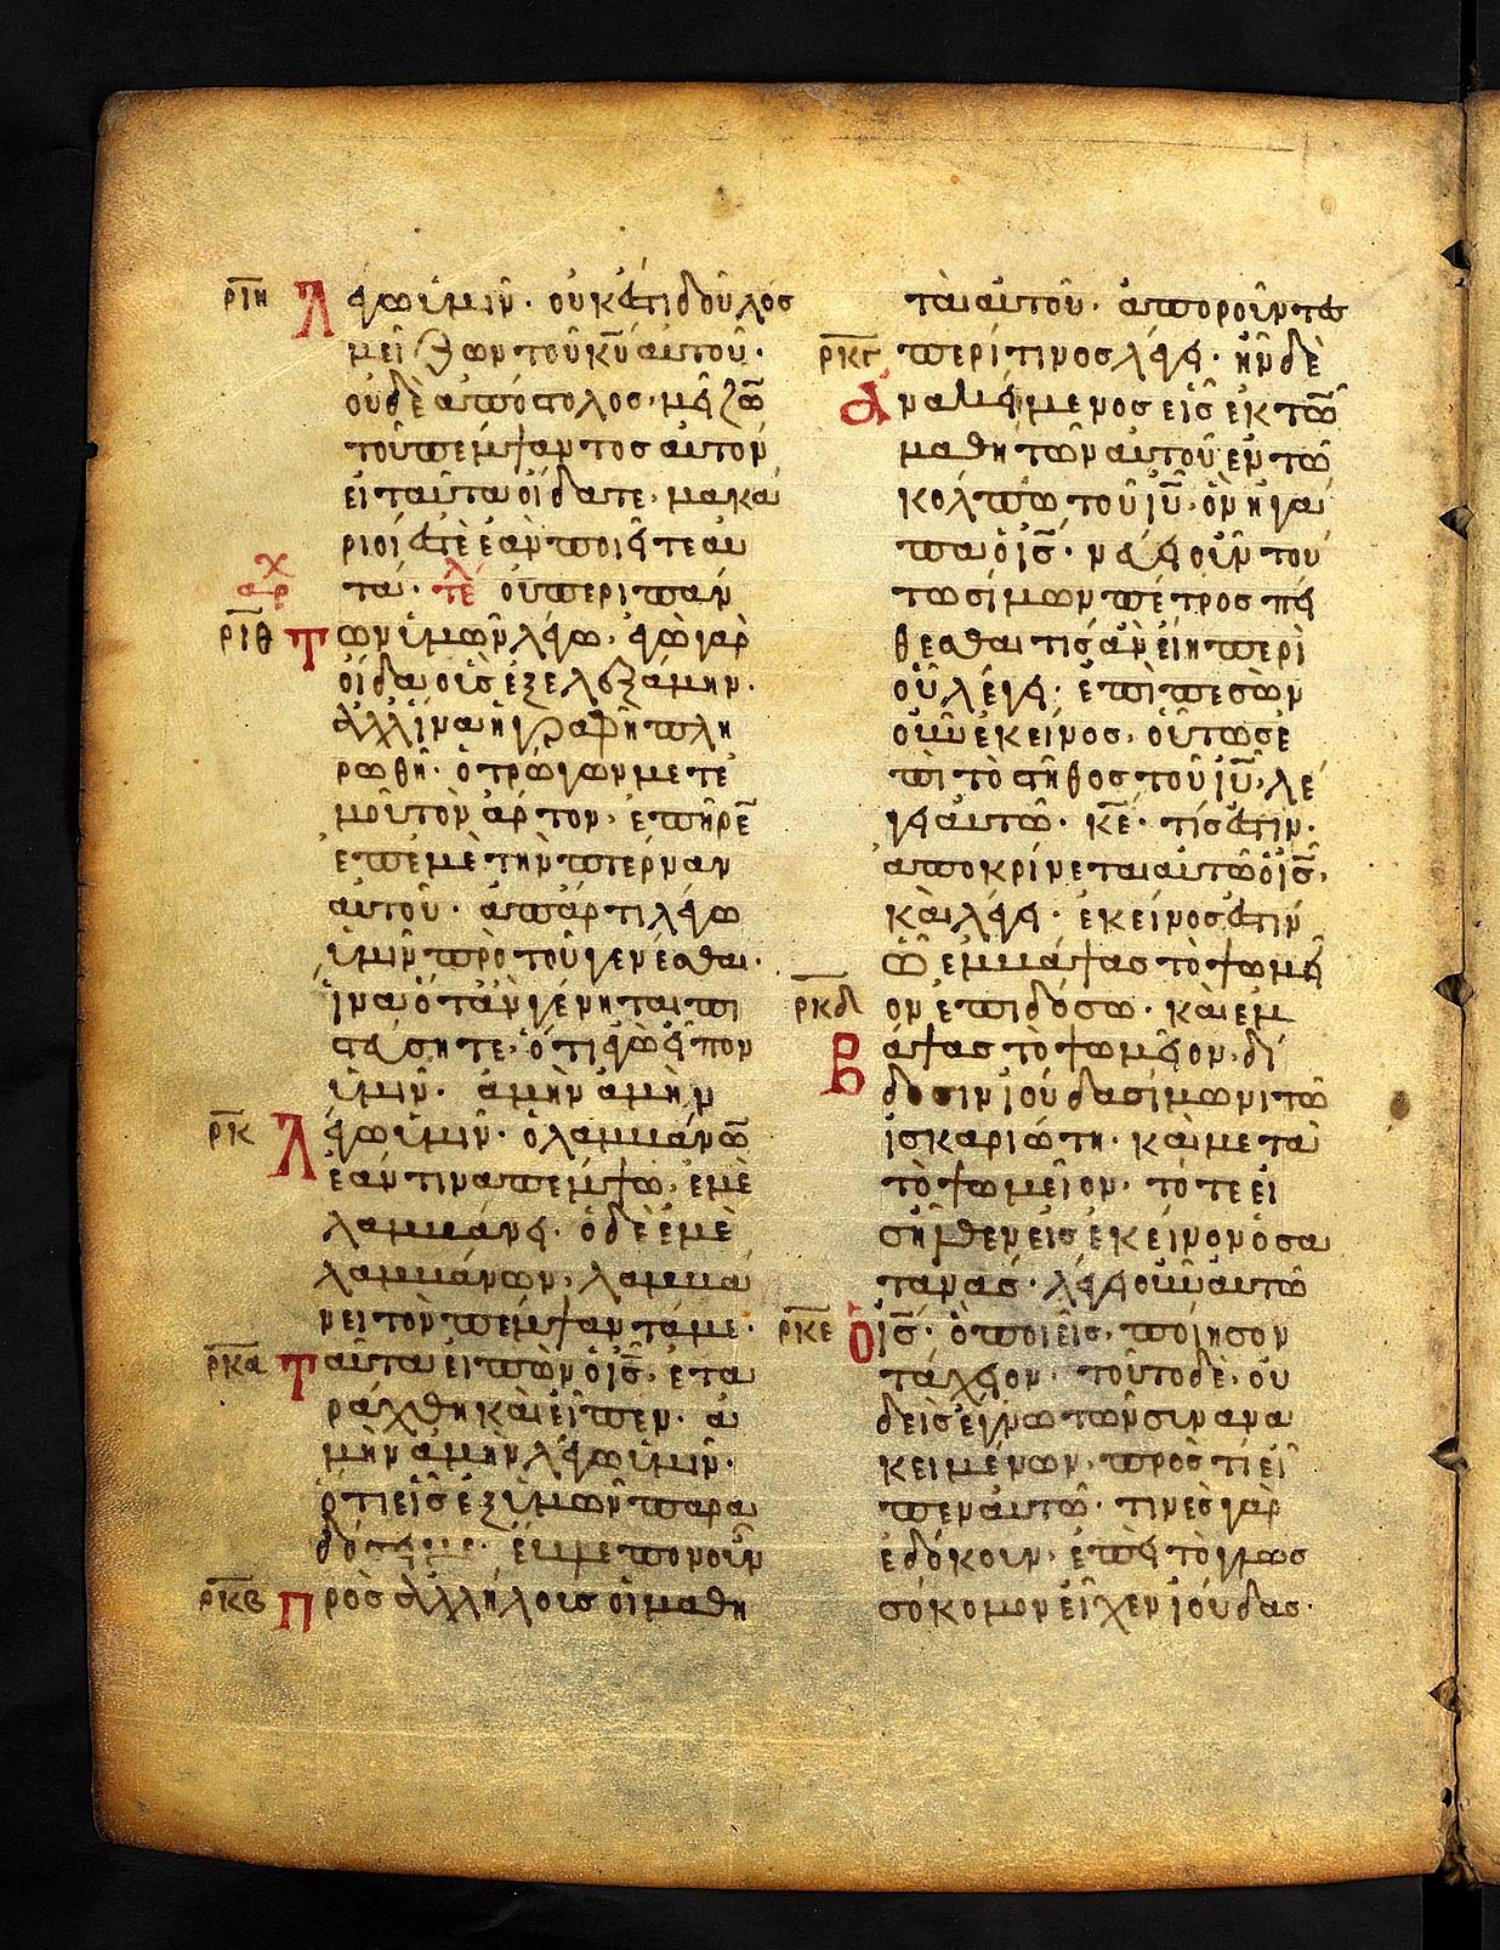 ριη Λέγω ὑμῖν· οὐκ ἔστι δοῦλος
μείζων τοῦ κ̅υ̅ αὐτοῦ·
οὐδὲ ἀπόστολος, μείζω̅
τοῦ πέμψαντος αὐτόν,
εἰ ταῦτα οἴδατε, μακά
ριοί ἐστὲ ἐὰν ποιεῖτε αὐ
τά· τε̅λ οὐ περὶ πάν
ριθ Των ὑμῶν λέγω· ἐγὼ γὰρ
οἶδα οὓς ἐξελεξάμην·
ἀλλ' ἵνα ἡ γραφὴ πλη
ρωθῆ· ὁ τρώγων μετ' ἐ
μοῦ τὸν ἄρτον, ἐπῆρε̅
ἐπ' ἐμὲ τὴν πτέρναν
αὐτοῦ· ἀπάρτι λέγω
ὑμῖν πρὸ τοῦ γενέσθαι·
ἵνα ὅταν γένηται πι
στεύσητε, ὅτι ἐγὼ εἶπον
ὑμῖν· ἀμὴν ἀμὴν
ρκ Λέγω ὑμῖν· ὁ λαμβάνω̅
ἐάν τινα πέμψω, ἐμὲ
λαμβάνει· ὁ δὲ ἐμὲ
λαμβάνων, λαμβά
νει τὸν πέμψαντά με·
ρκα Ταῦτα εἰπὼν ὁ ι̅ς̅, ἐτα
ράχθη καὶ εἶπεν· ἀ
μὴν ἀμὴν λέγω ὑμῖν·
ὅτι εἷς ἐξ ὑμῶν παρα
δώσει με· ἔβλεπον οὖν
ρκβ Πρὸς ἀλλήλους οἱ μαθη
ταὶ αὐτοῦ· ἀπορούμενοι
ρκγ περὶ τίνος λέγει· ἦν δὲ
Ἀνακείμενος εἷς ἐκ τῶ̅
μαθητῶν αὐτοῦ ἐν τῶ
κόλπω τοῦ ι̅υ̅, ὃν ἠγά
πα ὁ ι̅ς̅· νεύει οὖν τού
τω σίμων πέτρος πύ
θεσθαι τίς ἂν εἴη περὶ
οὗ λέγει· ἐπιπεσὼν
οὖν ἐκεῖνος, οὕτως ἐ
πὶ τὸ στῆθος τοῦ ι̅υ̅, λέ
γει αὐτῶ· κ̅ε̅· τίς ἐστιν·
ἀποκρίνεται αὐτῶ ὁ ι̅ς̅,
καὶ λέγει· ἐκεῖνός ἐστιν
ὧ ἐμβάψας τὸ ψωμεῖ
ρκδ ον ἐπιδώσω· καὶ ἐμ
Βάψας τὸ ψωμεῖον, δί
δωσιν ἰούδα σίμωνι τῶ
ἰσκαριώτη· καὶ μετὰ
τὸ ψωμεῖον, τότε εἰ
σῆλθεν εἰς ἐκεῖνον ὁ σα
τανᾶς· λέγει οὖν αὐτῶ
ρκε Ὁ ι̅ς̅· ὃ ποιεῖς, ποίησον
τάχειον· τοῦτο δὲ, οὐ
δεὶς ἔγνω τῶν συνανα
κειμένων, πρὸς τί εἶ
πεν αὐτῶ· τινὲς γὰρ
ἐδόκουν, ἐπεὶ τὸ γλωσ
σόκομον εἶχεν ἰούδας·